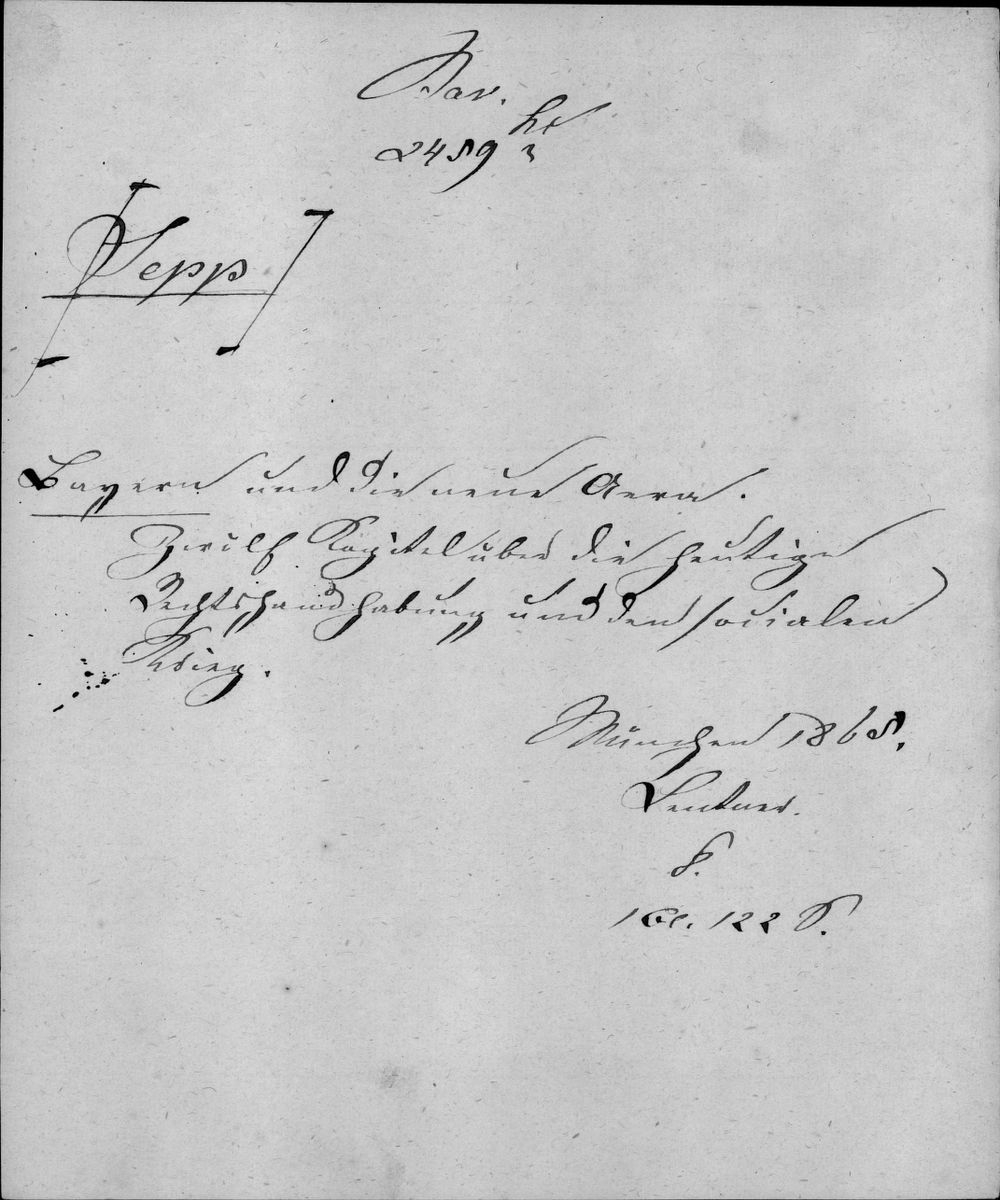 Bav.
2489 hd
3
[Sepp]
Bayern und die neue Aera.
Zwölf Kapitel über die heutige
Rechtshandhabung und den socialen
Krieg.
München 1868.
Lentner.
8.
1 Bl. 122 S.